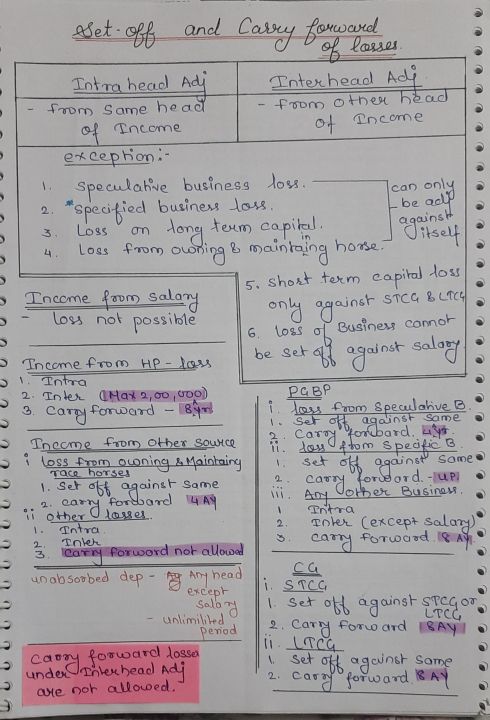 Set-off and Carry forward
of losses.
Intrahead Adj
- from same head
of Income
Interhead Adj
- from other head
of Income
exception:-
1. Speculative business loss.
2. *specified business loss.
3. Loss on long term capital.
4. Loss from owning & maintaing in horse.
can only
be adj
against
itself
5. short term capital loss
only against STCG & LTCG
6. loss of Business cannot
be set off against salary.
Income from salary
- loss not possible
Income from HP - loss
1. Intra
2. Inter (Max 2,00,000)
3. Carry forward - 8 Yr
Income from other source
i loss from owning & Maintaing
race horses
1. Set off against same
2. carry forward 4 AY
ii other losses
1. Intra
2. Inter
3. carry forward not allowed
unabsorbed dep - Any head
except
salary
- unlimited
period
carry forward losses
under Interhead Adj
are not allowed.
PGBP
i. loss from Speculative B.
1. Set off against same
2. Carry forward. 4 Yr
ii. loss from specific B.
1. set off against same
2. carry forward. - UP.
iii. Any other Business.
1 Intra
2. Inter (except salary)
3. carry forward. 8 AY
CG
i. STCG
1. set off against STCG or
LTCG
2. Carry forward 8AY
ii. LTCG
1. set off against same
2. carry forward. 8 AY